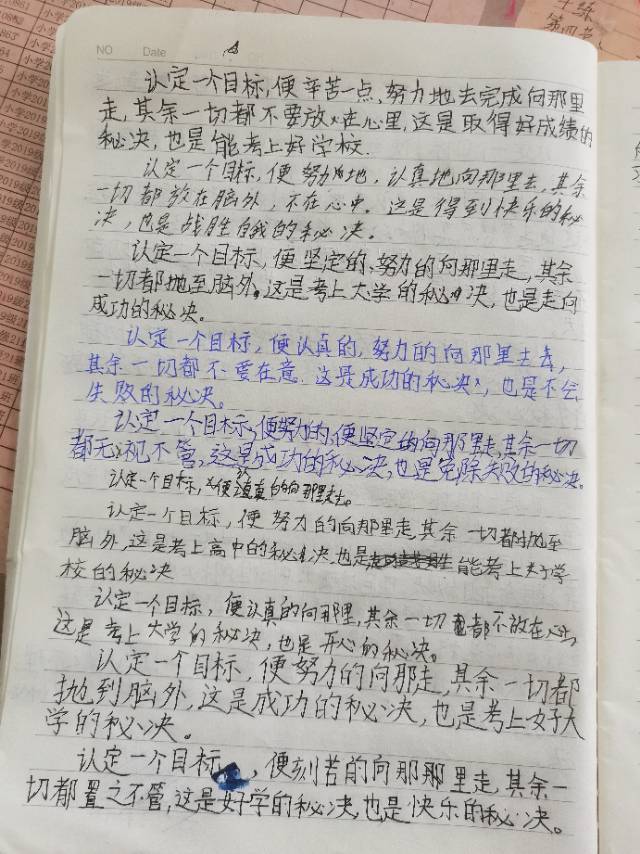 NO Date
认定一个目标,便辛苦一点,努力地去完成向那里
走,其余一切都不要放在心里,这是取得好成绩的
秘决,也是能考上好学校.
认定一个目标,便努力地,认真地向那里去,其余
一切都放在脑外,不在心中。这是得到快乐的秘
决,也是战胜自我的秘决。
认定一个目标,便坚定的、努力的向那里走,其余
一切都抛至脑外,这是考上大学的秘决,也是走向
成功的秘决。
认定一个目标,便认真的,努力的向那里去,
其余一切都不要在意.这是成功的秘决,也是不会
失败的秘决。
认定一个目标,便努力的,便坚定的向那里走,其余一切
都无视不管,这是成功的秘决,也是免除失败的秘决。
认定一个目标,便认真的向那里走。
认定一个目标,便努力的向那里走,其余一切都抛至
脑外,这是考上高中的秘决,也是能考上大学
校的秘决
认定一个目标,便认真的向那里,其余一切都不放在心上,
这是考上大学的秘决,也是开心的秘决。
认定一个目标,便努力的向那走,其余一切都
抛到脑外,这是成功的秘决,也是考上好大
学的秘决。
认定一个目标,便刻苦的向那那里走,其余一
切都置之不管,这是好学的秘决,也是快乐的秘决。